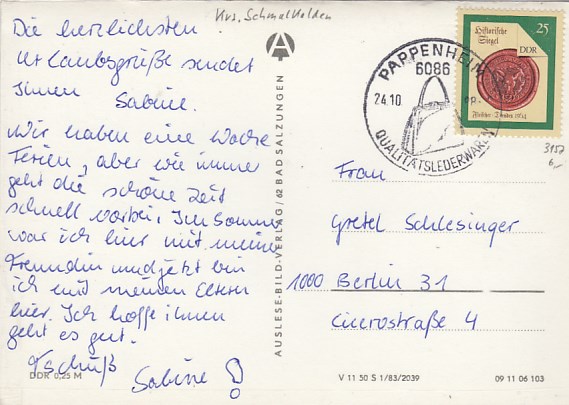 Krs. Schmalkalden
Die herzlichsten
Urlaubsgrüße sendet
Ihnen Sabine.
Wir haben eine Woche
Ferien, aber wie immer
geht die schöne Zeit
schnell vorbei. Im Sommer
war ich hier mit meiner
Freundin und jetzt bin
ich mit meinen Eltern
hier. Ich hoffe ihnen
geht es gut.
Tschüß
Sabine!
DDR 0,25 M
AUSLESE-BILD-VERLAG / 62 BAD SALZUNGEN
A
PAPPENHEIM
6086
24.10.
QUALITÄTSLEDERWAREN
Historische
Siegel
25
DDR
3157
6,–
Frau
Gretel Schlesinger
1000 Berlin 31
Cicerostraße 4
V 11 50 S 1/83/2039
09 11 06 103